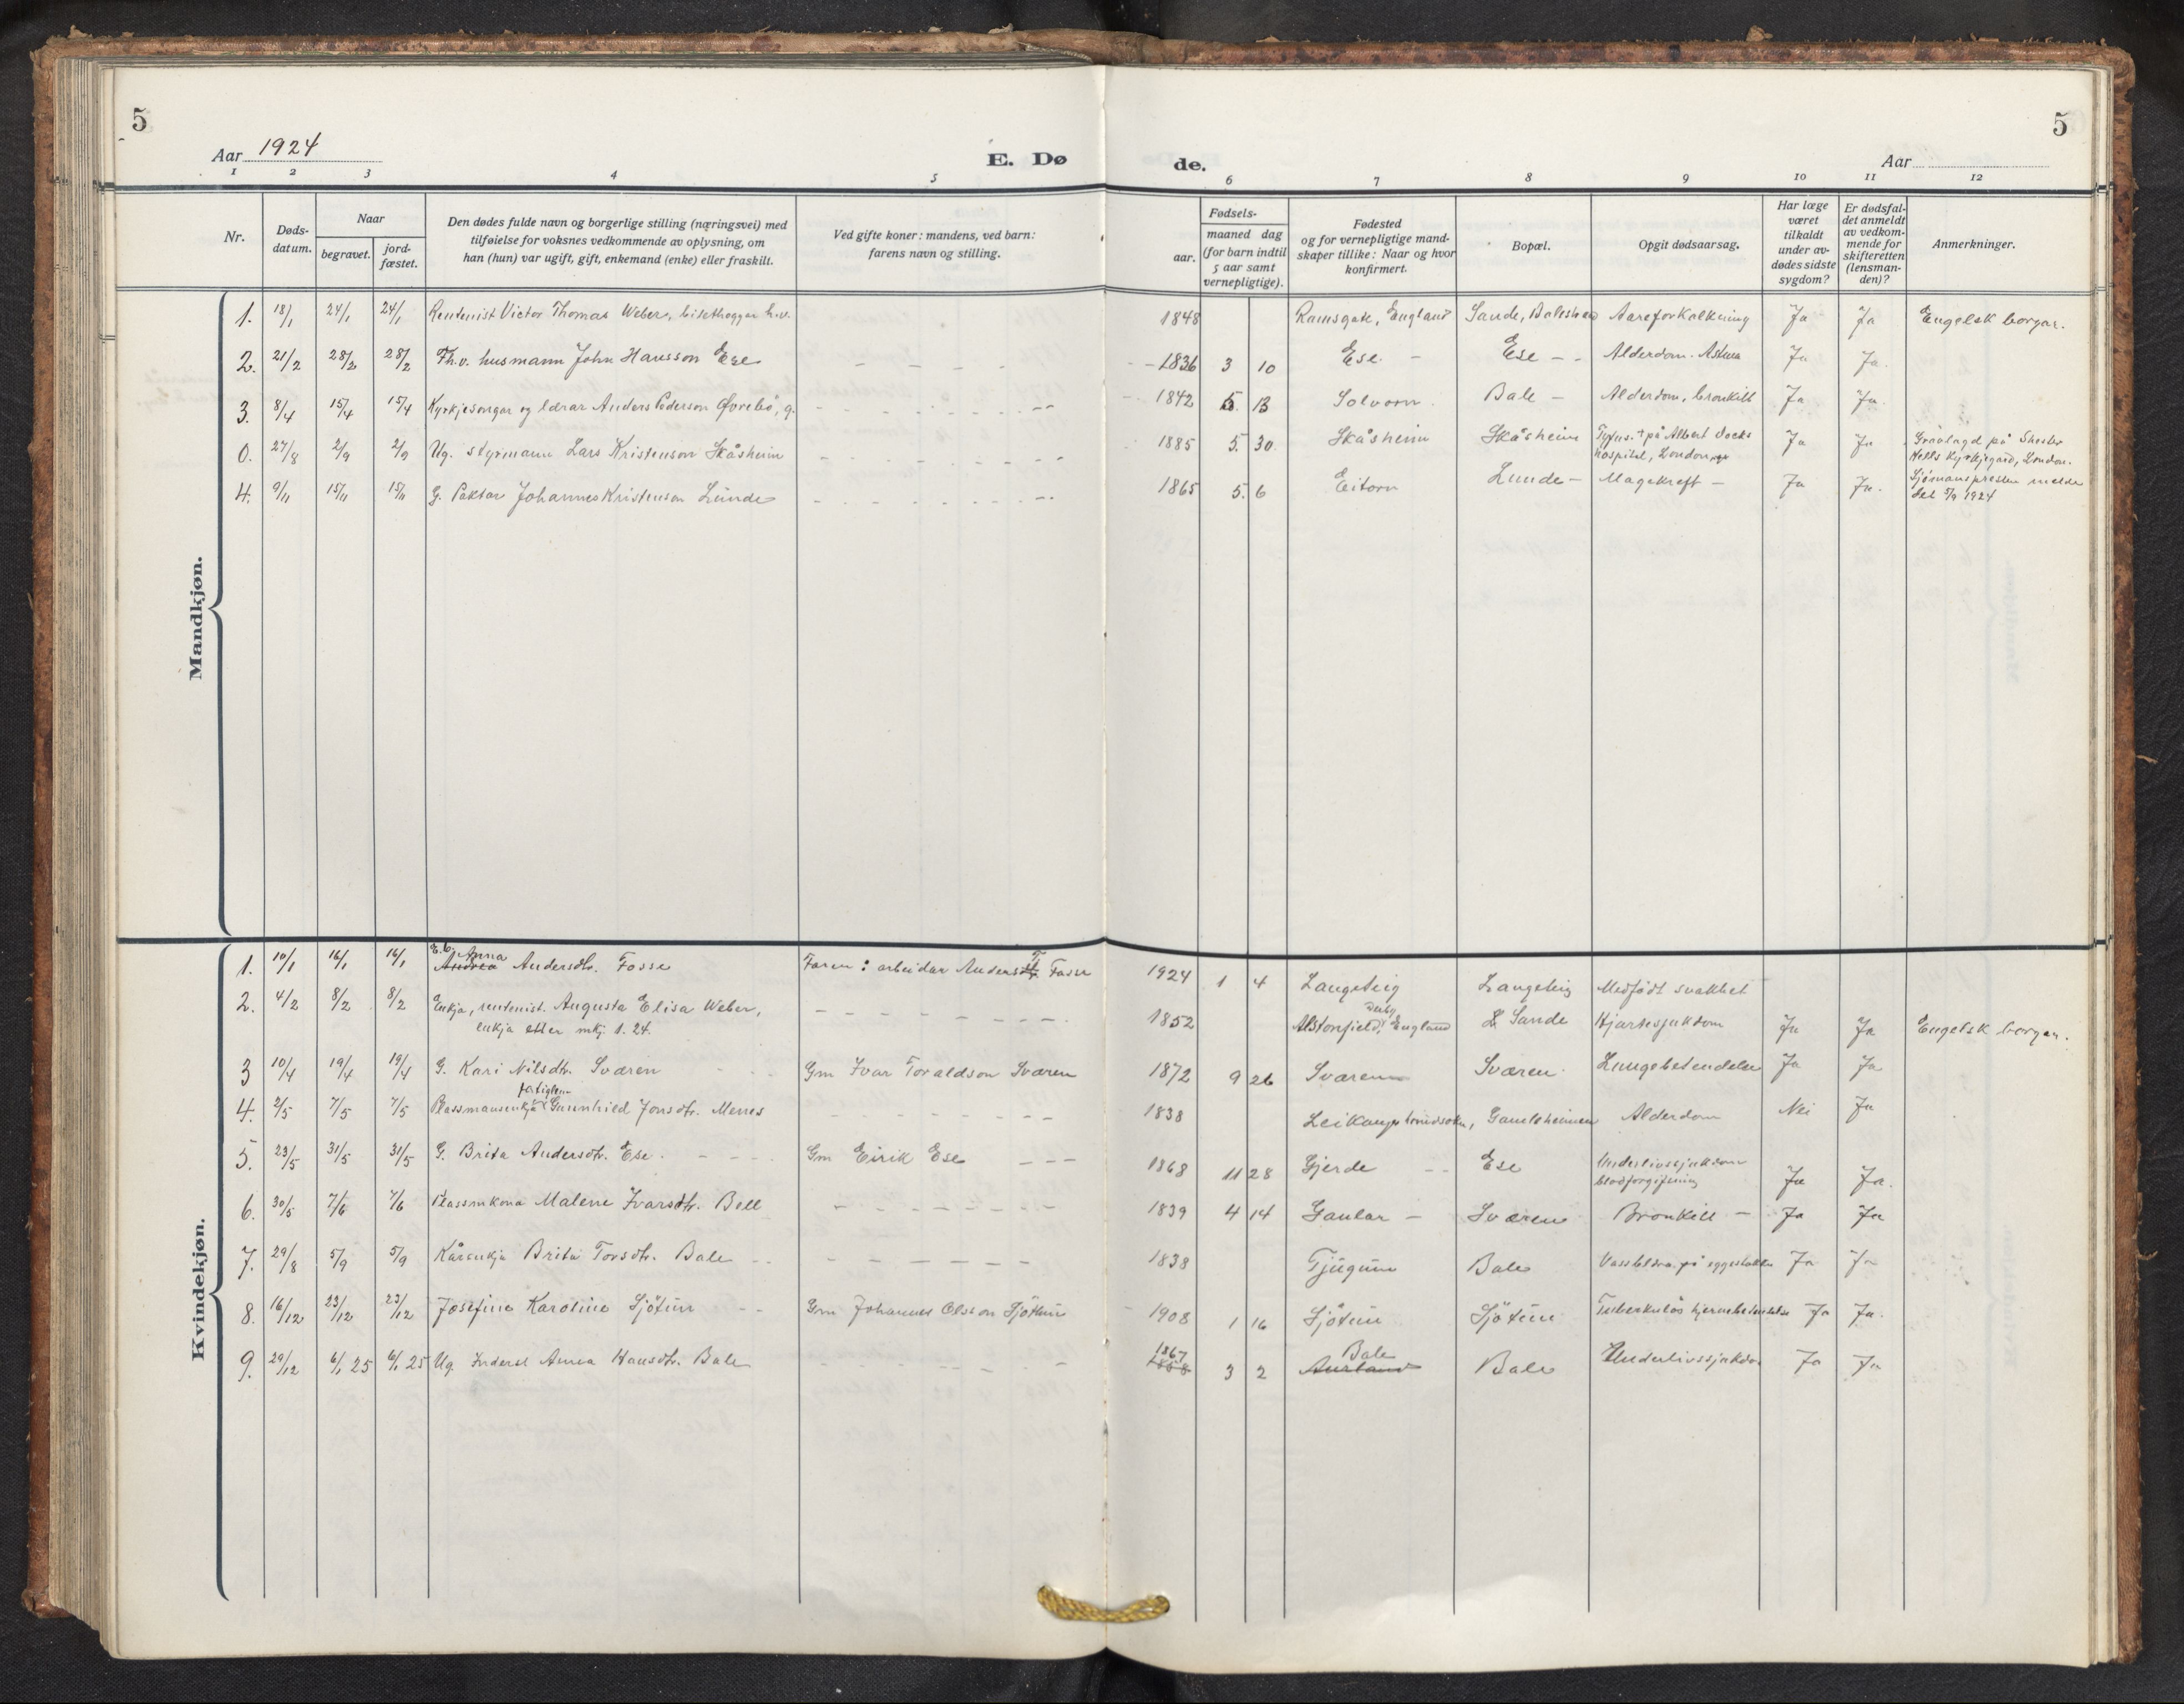 5
5
Aar 1924
E. Dø
de.
Aar
1 2 3 4 5 6 7 8 9 10 11 12
Nr.
Døds-
datum.
Naar
begravet.
jord-
fæstet.
Den dødes fulde navn og borgerlige stilling (næringsvei) med
tilføielse for voksnes vedkommende av oplysning, om
han (hun) var ugift, gift, enkemand (enke) eller fraskilt.
Ved gifte koner: mandens, ved barn:
farens navn og stilling.
Fødsels-
aar.
maaned dag
(for barn indtil
5 aar samt
vernepligtige).
Fødested
og for vernepligtige mand-
skaper tillike: Naar og hvor
konfirmert.
Bopæl.
Opgit dødsaarsag.
Har læge
været
tilkaldt
under av-
dødes sidste
sygdom?
Er dødsfal-
det anmeldt
av vedkom-
mende for
skifteretten
(lensman-
den)?
Anmerkninger.
Mandkjøn.
1. 18/1 24/1 24/1 Rentenist Victor Thomas Weber, bilethoggar h.v. 1848 Ramsgate, England Sande, Balestrand Aareforkalkning Ja Ja Engelsk borgar.
2. 21/2 28/2 28/2 Fh.v. husmann John Hansson Ese 1836 3 10 Ese Ese Alderdom. Astma Ja Ja.
3. 8/4 15/4 15/4 Kyrkjesongar og lærar Anders Pederson Øvrebø, g. 1842 5. 13 Solvorn Bale Alderdom, bronkitt Ja Ja.
0. 27/8 2/9 2/9 Ug. styrmann Lars Kristenson Skåsheim 1885 5. 30 Skåsheim Skåsheim Tyfus. † på Albert Docks Ja Ja Gravlagd på
hospital, London
kyrkjegard, London.
4. 9/11 15/11 15/11 G. Paktar Johannes Kristenson Lunde 1865 5. 6 Eitorn Lunde Magekreft Ja Ja. Sjømanspresten melde
det 3/9 1924
Kvindekjøn.
E.b. Anna
1. 10/1 16/1 16/1 Andrea Andersdtr. Fosse Faren: arbeidar Anders T. Fosse 1924 1 4 Langeteig Langeteig Medfødt svakhet
2. 4/2 8/2 8/2 Enkja, rentenist. Augusta Elisa Weber, 1852 Alstonfield, Derby England Sande Hjartesjukdom Ja Ja Engelsk borgar.
enkja etter mkj. 1. 24.
3 10/4 19/4 19/4 G. Kari Nilsdtr. Sværen Gm Ivar Toraldson Sværen 1872 9 26 Sværen Sværen Lungebetendelse Ja Ja
fatiglem
4. 2/5 7/5 7/5 Plassmansenkja Gunnhild Jonsdtr. Menes 1838 Leikanger hovudsokn, Gamleheimen Alderdom Nei Ja
5. 23/5 31/5 31/5 G. Brita Andersdtr. Ese. Gm Eirik Ese 1868 11 28 Gjerde Ese Underlivssjukdom
blodforgiftning Ja Ja.
6. 30/5 7/6 7/6 Plassmkona Malene Ivarsdtr. Bell 1839 4 14 Gaular Sværen Bronkitt Ja Ja
7. 29/8 5/9 5/9 Kårenkja Brita Torsdtr. Bale 1838 Tjugum Bale Vassbldra. på eggestokken Ja Ja
8. 16/12 23/12 23/12 Josefine Karoline Sjötun Gm Johannes Olsson Sjötun 1908 1 16 Sjötun Sjötun Tuberkuløs hjernebetendelse Ja Ja.
1867 Bale
9. 29/12 6/1 25 6/1 25 Ug. Inderst Anna Hansdtr. Bale 1868 3 2 Aurland Bale Underlivssjukdom Ja Ja